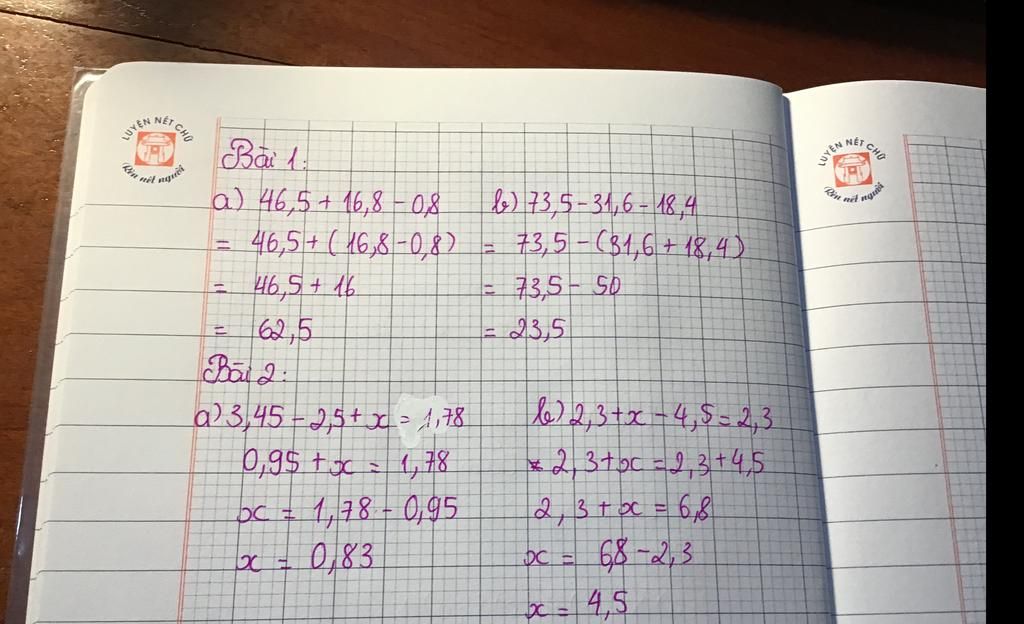 LUYỆN NÉT CHỮ
Rèn nết người
LUYỆN NÉT CHỮ
Rèn nết người
Bài 1:
a) 46,5 + 16,8 - 0,8
= 46,5 + (16,8 - 0,8)
= 46,5 + 16
= 62,5
b) 73,5 - 31,6 - 18,4
= 73,5 - (31,6 + 18,4)
= 73,5 - 50
= 23,5
Bài 2:
a) 3,45 - 2,5 + x = 1,78
0,95 + x = 1,78
x = 1,78 - 0,95
x = 0,83
b) 2,3 + x - 4,5 = 2,3
2,3 + x = 2,3 + 4,5
2,3 + x = 6,8
x = 6,8 - 2,3
x = 4,5